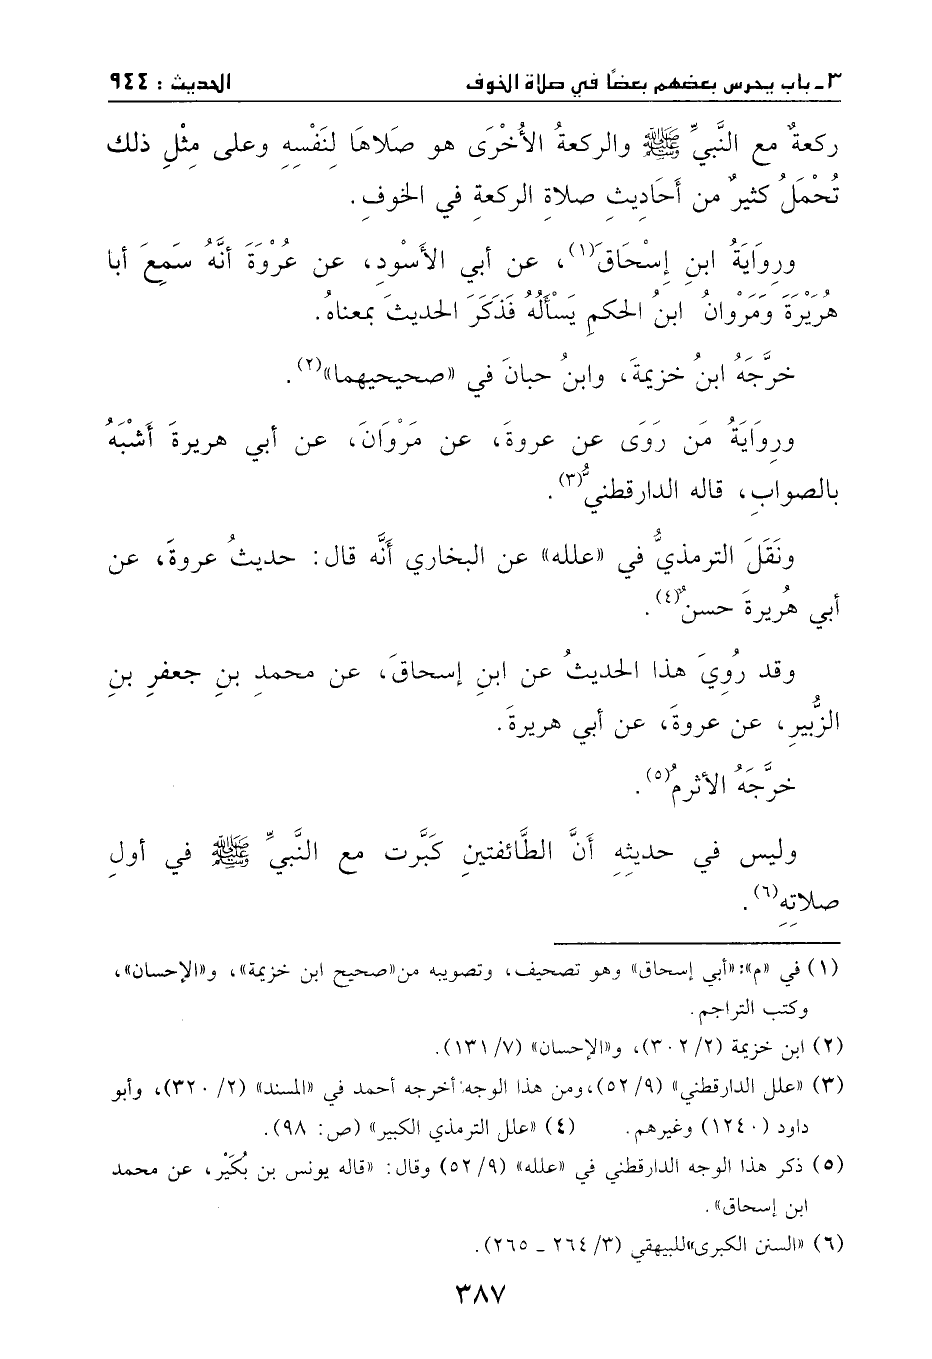 ٣ ـ باب يحرس بعضهم بعضًا في صلاة الخوف الحديث : ٩٤٤
ركعةٌ مع النَّبيِّ ﷺ والركعةُ الأُخْرَى هو صلَاهَا لِنَفْسِهِ وعلى مثْلِ ذلك
تُحْمَلُ كثيرٌ من أَحَاديثِ صلاةِ الركعةِ في الخوفِ.
وروَايَةُ ابنِ إسْحَاقَ(١)، عن أبي الأسْودِ، عن عُرْوَةَ أنَّهُ سَمِعَ أبا
هُرَيْرَةَ وَمَرْوانُ ابنُ الحكمِ يَسْأَلُهُ فَذَكَرَ الحديثَ بمعناهُ.
خرَّجَهُ ابنُ خزيمةَ، وابنُ حبانَ في «صحيحيهما»(٢).
وروَايَةُ مَن رَوَى عن عروةَ، عن مَرْوَانَ، عن أبي هريرةَ أشْبَهُ
بالصوابِ، قاله الدارقطنيُّ(٣).
ونَقَلَ الترمذيُّ في «علله» عن البخاري أنَّه قال: حديثُ عروةَ، عن
أبي هُريرةَ حسنٌ(٤).
وقد رُوِيَ هذا الحديثُ عن ابنِ إسحاقَ، عن محمدِ بنِ جعفرِ بنِ
الزُّبيرِ، عن عروةَ، عن أبي هريرةَ.
خرَّجَهُ الأثرمُ(٥).
وليس في حديثِهِ أنَّ الطَّائفتينِ كَبَّرت مع النَّبيِّ ﷺ في أولِ
صلاتِهِ(٦).
(١) في «م»: «أبي إسحاق» وهو تصحيف، وتصويبه من«صحيح ابن خزيمة»، و«الإحسان»،
وكتب التراجم.
(٢) ابن خزيمة (٢/ ٣٠٢)، و«الإحسان» (٧/ ١٣١).
(٣) «علل الدارقطني» (٩/ ٥٢)،ومن هذا الوجه أخرجه أحمد في «المسند» (٢/ ٣٢٠)، وأبو
داود (١٢٤٠) وغيرهم. (٤) «علل الترمذي الكبير» (ص: ٩٨).
(٥) ذكر هذا الوجه الدارقطني في «علله» (٩/ ٥٢) وقال: «قاله يونس بن بُكَيْر، عن محمد
ابن إسحاق».
(٦) «السنن الكبرى»للبيهقي (٣/ ٢٦٤ ـ ٢٦٥).
٣٨٧